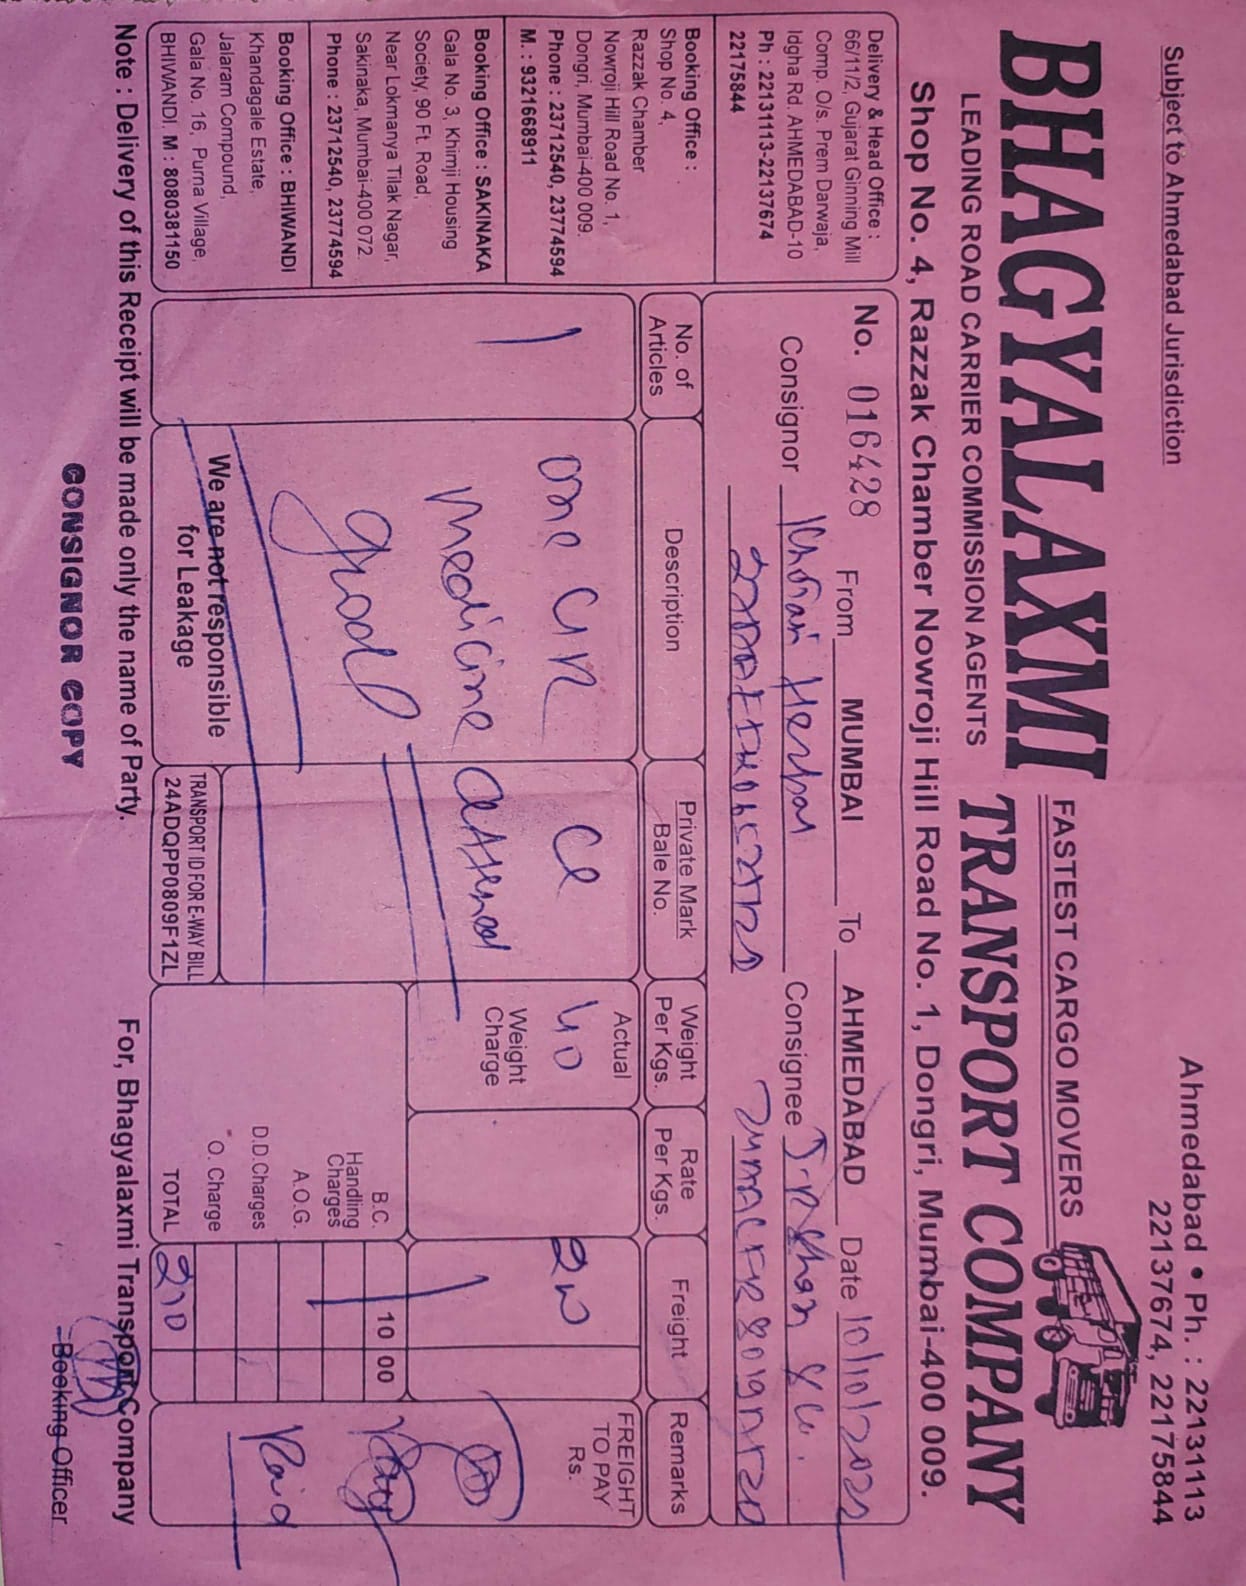 Subject to Ahmedabad Jurisdiction
Ahmedabad • Ph. : 22131113
22137674, 22175844
FASTEST CARGO MOVERS
BHAGYALAXMI TRANSPORT COMPANY
LEADING ROAD CARRIER COMMISSION AGENTS
Shop No. 4, Razzak Chamber Nowroji Hill Road No. 1, Dongri, Mumbai-400 009.
Delivery & Head Office :
66/11/2, Gujarat Ginning Mill
Comp. O/s. Prem Darwaja,
Idgha Rd. AHMEDABAD-10
Ph : 22131113-22137674
22175844
Booking Office :
Shop No. 4,
Razzak Chamber
Nowroji Hill Road No. 1,
Dongri, Mumbai-400 009.
Phone : 23712540, 23774594
M. : 9321668911
Booking Office : SAKINAKA
Gala No. 3, Khimji Housing
Society, 90 Ft. Road,
Near Lokmanya Tilak Nagar,
Sakinaka, Mumbai-400 072.
Phone : 23712540, 23774594
Booking Office : BHIWANDI
Khandagale Estate,
Jalaram Compound,
Gala No. 16, Purna Village,
BHIWANDI. M : 8080381150
No. 016428 From MUMBAI To AHMEDABAD Date
Consignor Consignee
No. of Articles
Description
Private Mark Bale No.
Weight Per Kgs.
Rate Per Kgs.
Freight
Remarks
1
one
medicine
good
Actual
40
Weight Charge
FREIGHT TO PAY Rs.
B.C. 10 00
Handling Charges
A.O.G.
D.D.Charges
O. Charge
TOTAL 210
Paid
We are not responsible for Leakage
TRANSPORT ID FOR E-WAY BILL
24ADQPP0809F1ZL
Note : Delivery of this Receipt will be made only the name of Party.
For, Bhagyalaxmi Transport Company
CONSIGNOR COPY
Booking Officer